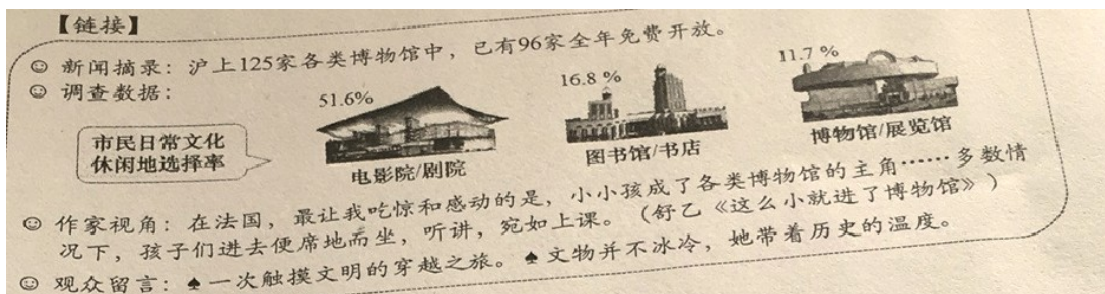 【链接】
☺ 新闻摘录：沪上125家各类博物馆中，已有96家全年免费开放。
☺ 调查数据：
市民日常文化
休闲地选择率
51.6%
电影院/剧院
16.8 %
图书馆/书店
11.7 %
博物馆/展览馆
☺ 作家视角：在法国，最让我吃惊和感动的是，小小孩成了各类博物馆的主角……多数情
况下，孩子们进去便席地而坐，听讲，宛如上课。（舒乙《这么小就进了博物馆》）
☺ 观众留言：♠一次触摸文明的穿越之旅。♠文物并不冰冷，她带着历史的温度。